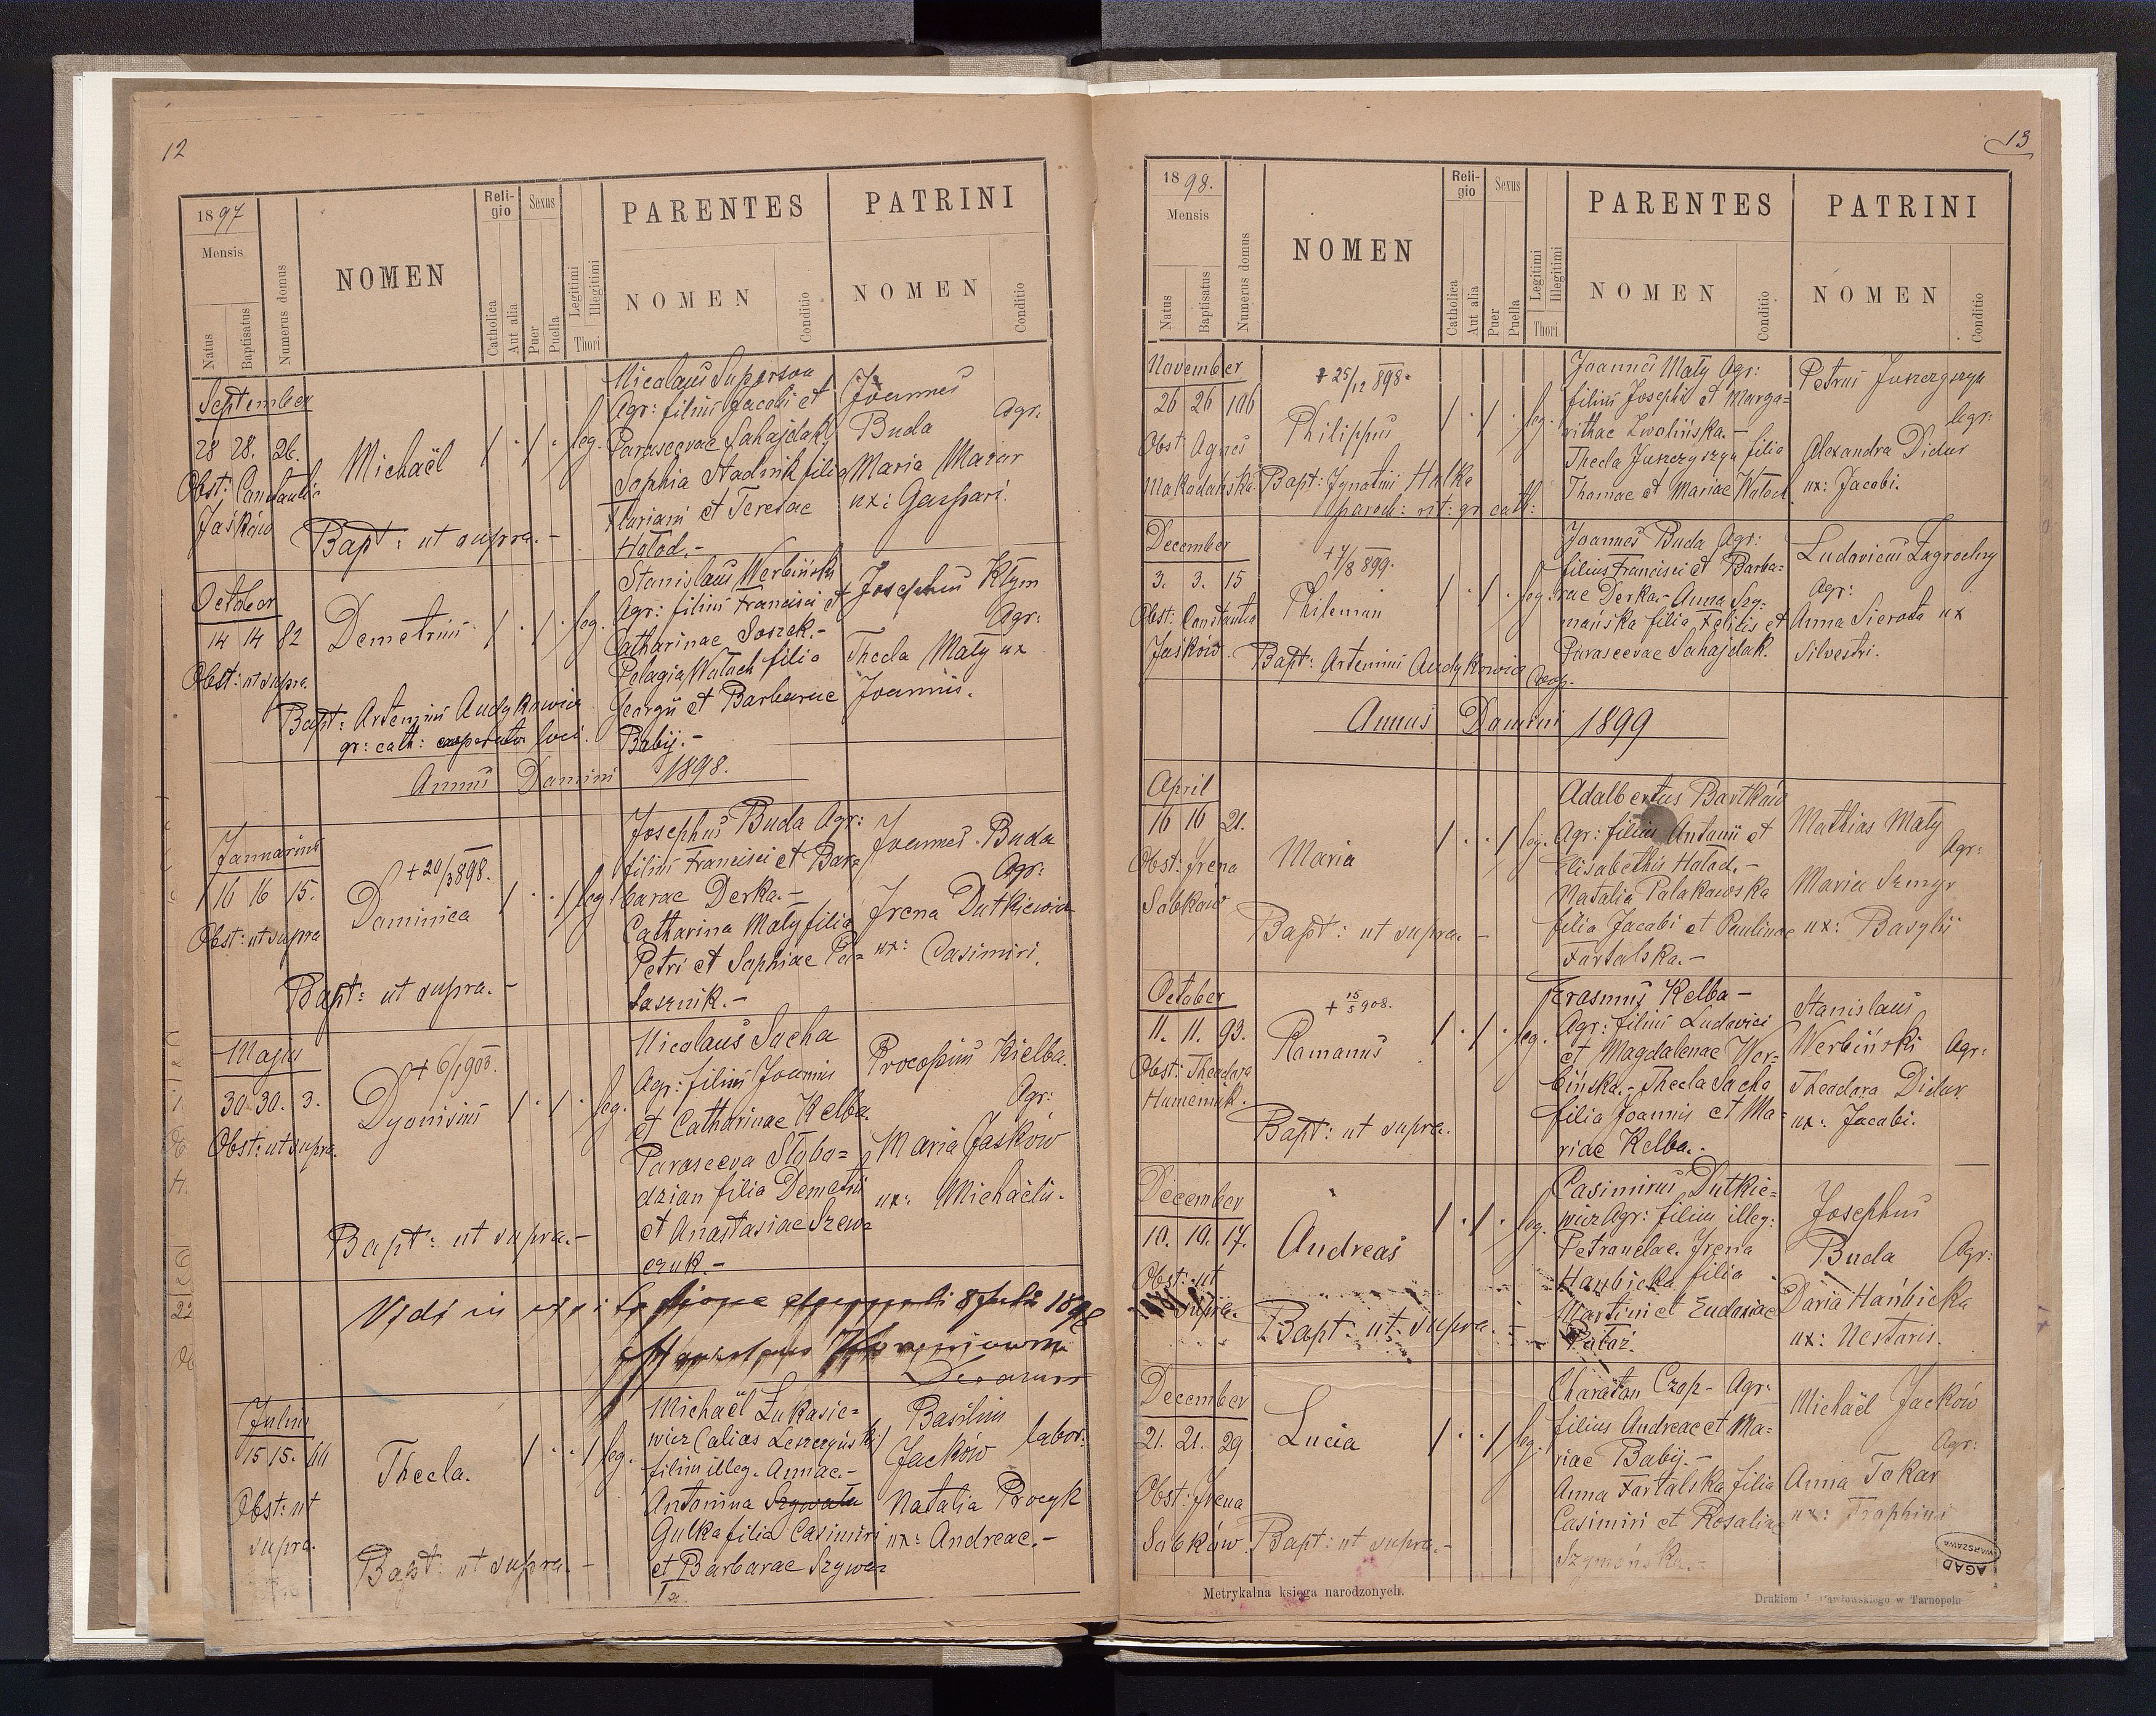 12
1897
Mensis
Natus
Baptisatus
Numerus domus
NOMEN
Religio
Catholica
Aut alia
Sexus
Puer
Puella
Legitimi
Illegitimi
Thori
PARENTES
NOMEN
Conditio
PATRINI
NOMEN
Conditio
September
28 28. 26.
Obst: Constantia
Jaśków
Michaël
1 . 1 . leg.
Bapt: ut supra.-
Nicolaus Superson
Agr: filius Jacobi et
Parascevae Sahajdak.
Sophia Stadnik filia
Floriani et Teresae
Hołod.-
Joannes
Buda Agr.
Maria Mazur
ux: Gaspari.
October
14 14 82
Obst: ut supra.
Demetrius
1 . 1 . leg.
Bapt: Artemius Audykowicz
gr: cath: cooperator loci.
Stanislaus Werbiński
Agr: filius Francisci et
Catharinae Soszek.-
Pelagia Wołoch filia
Georgii et Barbarae
Babij.-
Josephus Kłym
Agr:
Thecla Mały ux
Joannis.
Annus Domini 1898.
Januarius
16 16 15.
Obst: ut supra
+ 20/3 898.
Dominica
1 . . 1 leg
Bapt: ut supra.-
Josephus Buda Agr:
filius Francisci et Bar=
barae Derka.-
Catharina Mały filia
Petri et Sophiae Pa=
łasznik.-
Joannes Buda
Agr:
Irena Dutkiewicz
ux: Casimiri.
Majus
30 30. 3.
Obst: ut supra.
+ 6/1 900.
Dyonisius
1 . 1 . leg.
Bapt: ut supra.-
Nicolaus Sacha
Agr: filius Joannis
et Catharinae Kelba.
Parasceva Słobo=
dzian filia Demetrii
et Anastasiae Szew=
czuk.-
Procopius Kielba.
Agr:
Maria Jaskow
ux: Michaëlis.
Vidi in 8 Juli 1898
Decanus
Julius
15 15. 44
Obst: ut
supra.
Thecla.
1 . . 1 leg.
Bapt: ut supra.-
Michaël Łukasie=
wicz (alias Leszczyński)
filius illeg. Annae.-
Antonina Szywała
Gulka filia Casimiri
et Barbarae Szywa=
ła.
Basilius
Jacków labor:
Natalia Procyk
ux: Andreae.-
13
1898.
Mensis
Natus
Baptisatus
Numerus domus
NOMEN
Religio
Catholica
Aut alia
Sexus
Puer
Puella
Legitimi
Illegitimi
Thori
PARENTES
NOMEN
Conditio
PATRINI
NOMEN
Conditio
November
26 26 106
Obst: Agnes
Makodańska.
+ 25/12 898.
Philippus
1 . 1 . leg.
Bapt: Ignatius Hulka
paroch: rit: gr cath:
Joannes Mały Agr:
filius Josephi et Marga=
rithae Zwolińska.-
Thecla Juszczyszyn filia
Thomae et Mariae Wołoch.
Petrus Juszczyszyn
Agr:
Alexandra Didur
ux: Jacobi.
December
3. 3. 15
Obst: Constantia
Jaśków.
+ 7/8 899.
Philemon
1 . 1 . leg.
Bapt: Artemius Audykowicz Coop.
Joannes Buda Agr:
filius Francisci et Barba=
rae Derka.- Anna Szy=
mańska filia Felitis et
Parascevae Sahajdak.
Ludovicus Zagrodny
Agr:
Anna Sierota ux
Silvestri.
Annus Domini 1899
April
16 16 21.
Obst: Irena
Sobków
Maria
1 . . 1 leg.
Bapt: ut supra.-
Adalbertus Bartków
Agr: filius Antonii et
Elisabethis Hołod.-
Natalia Polakowska
filia Jacobi et Paulinae
Fartalska.-
Mathias Mały
Agr:
Maria Szmyr
ux: Basylii
October
11. 11. 93.
Obst: Theodora
Humeniuk.
+ 15/5 908.
Romanus
1 . 1 . leg.
Bapt: ut supra.
Erasmus Kelba-
Agr: filius Ludovici
et Magdalenae Wer=
bińska.- Thecla Sacha
filia Joannis et Ma=
riae Kelba.-
Stanislaus
Werbiński Agr:
Theodora Didur
ux: Jacobi.
December
10. 10. 17.
Obst: ut
supra.
Andreas
1 . 1 . leg.
Bapt: ut supra.-
Casimirus Dutkie=
wicz Agr: filius illeg:
Petronelae. Irena
Hańbicka filia
Martini et Eudoxiae
Josephus
Buda Agr:
Daria Hańbicka
ux: Nestoris.
December
21. 21. 29
Obst: Irena
Sobków.
Lucia
1 . . 1 leg.
Bapt: ut supra.-
Chariton Czop- Agr.
filius Andreae et Ma=
riae Babij.-
Anna Fartalska filia
Casimiri et Rosaliae
Szymańska.-
Michaël Jacków
Agr:
Anna Tokar
ux: Trophimi
AGAD
WARSZAWA
Metrykalna księga narodzonych.
Drukiem J. Pawłowskiego w Tarnopolu